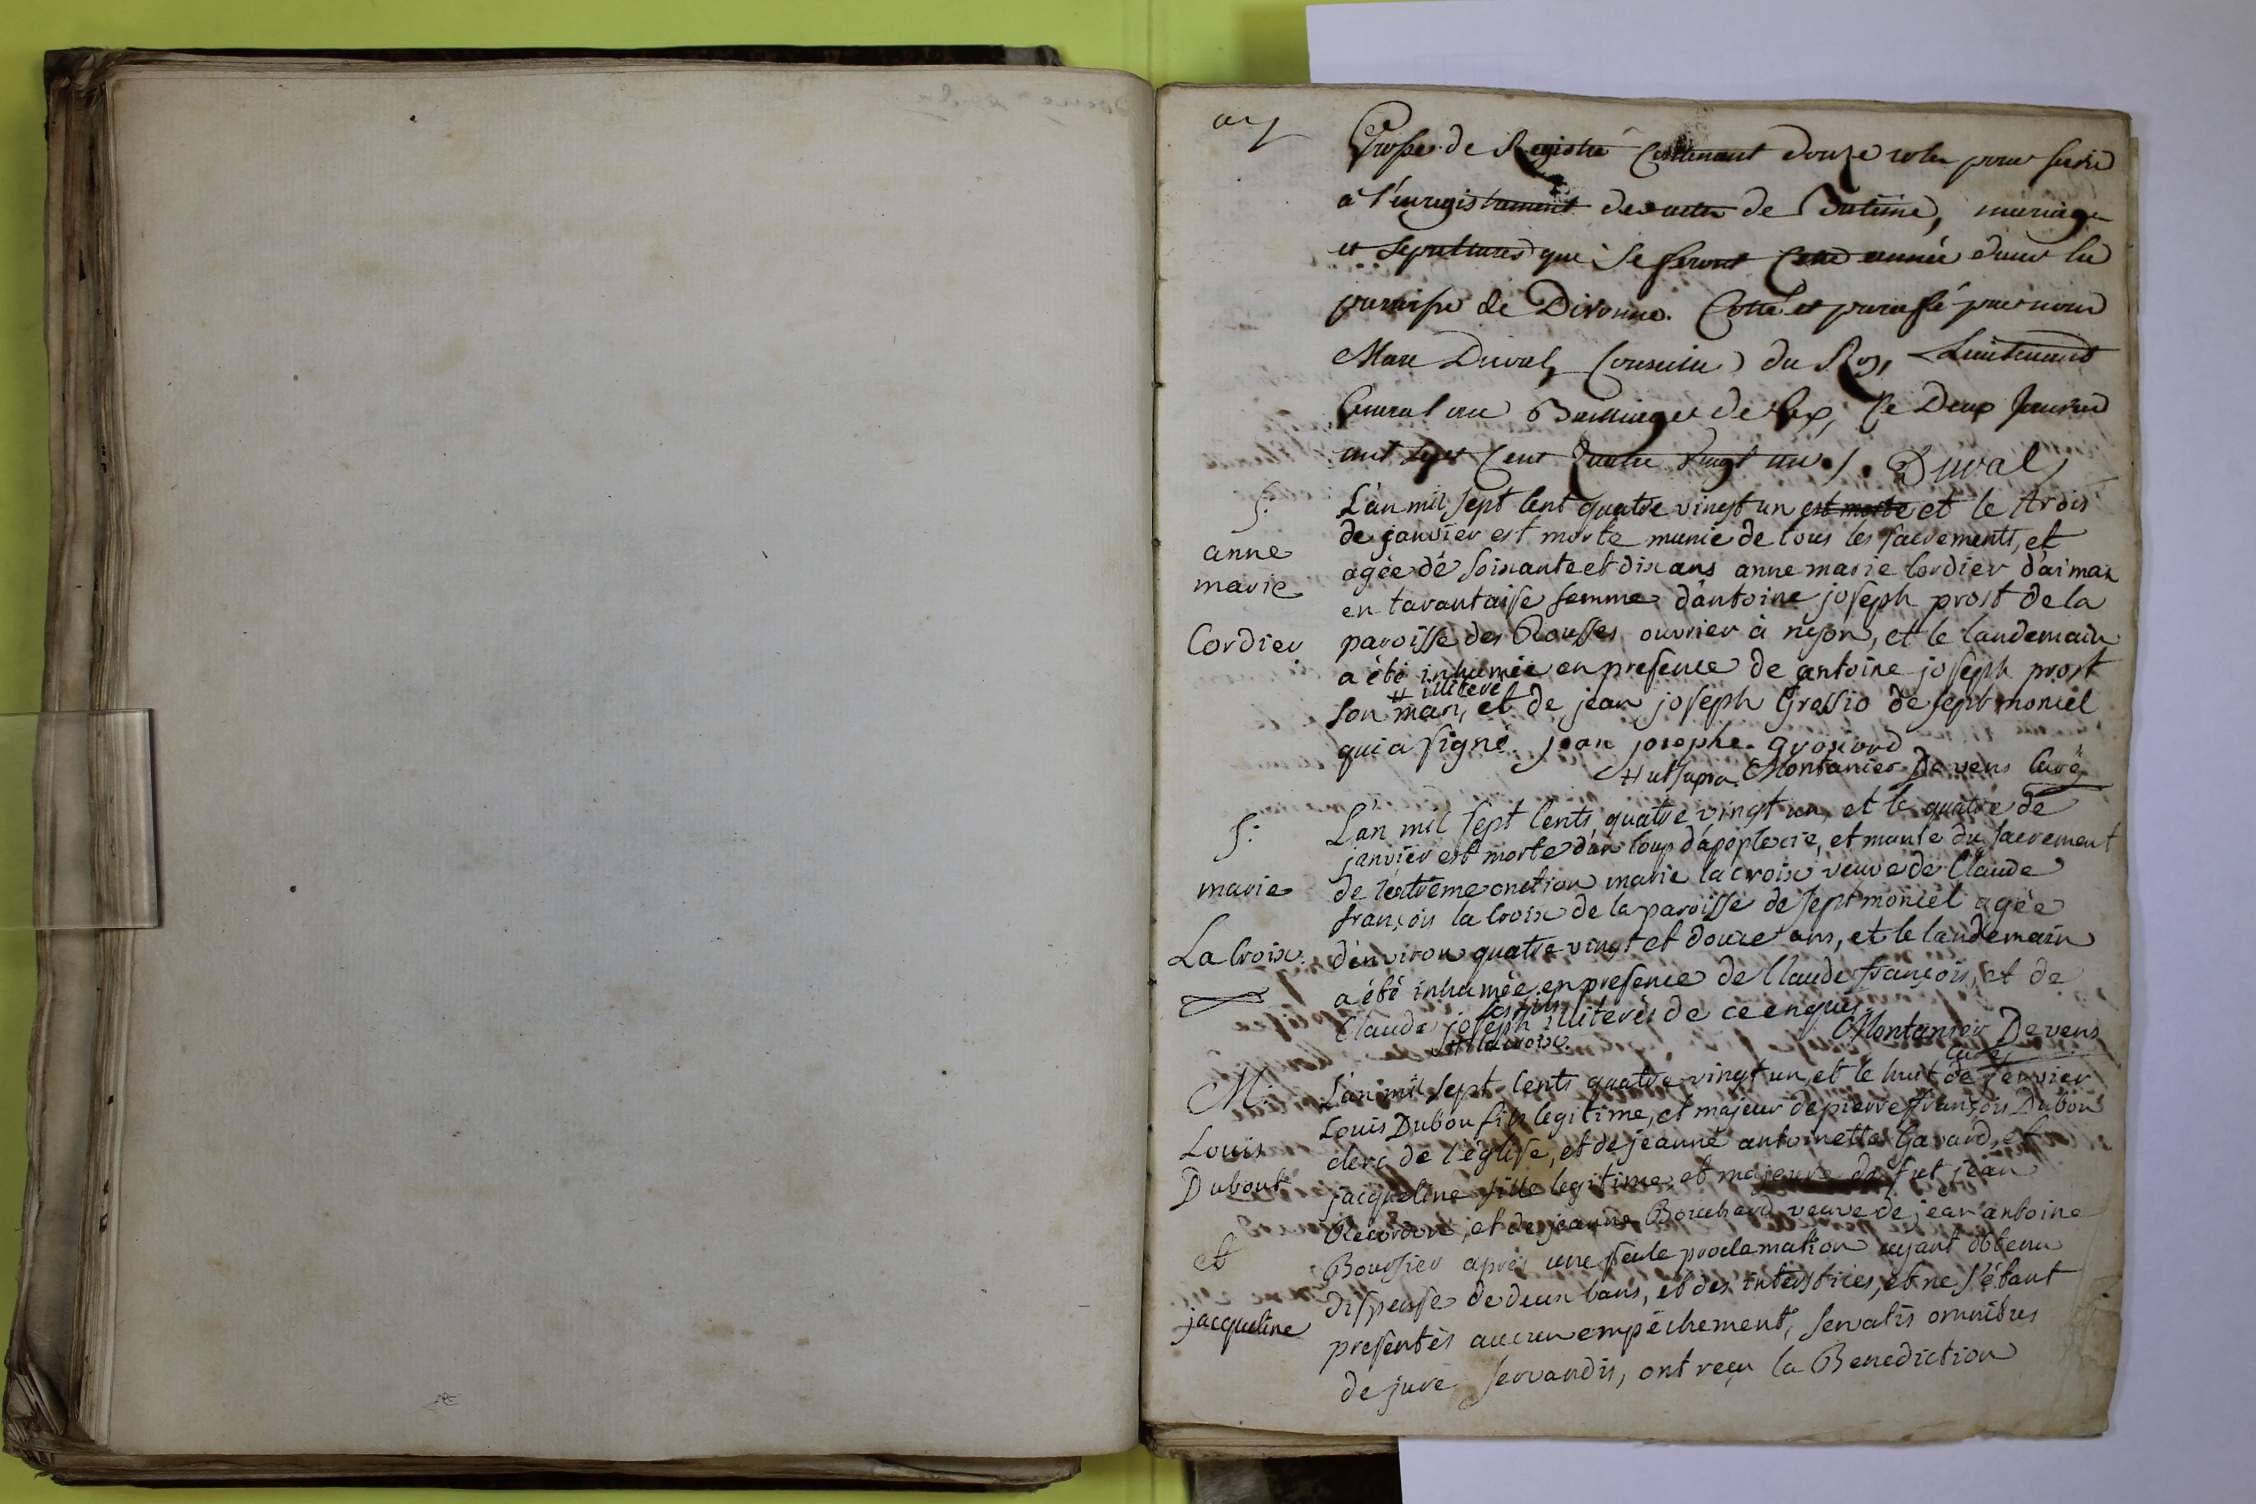 Grosse de Registre Contenant douze roles pour servir
à l'enregistrement des actes de Batême, mariage
et sepultures que se feront cette année dans la
paroisse de Divonne. Cotté et paraffé par nous
Marc Duval, Conseiller du Roy, Lieutenant
General au Bailliage de Gex, ce Deux Janvier
mil sept Cent Quatre Vingt un ./. Duval
S:
anne
marie
Cordier
L'an mil sept cent quatre vingt un est morte et le trois
de janvier est morte munie de tous les sacrements, et
agée dé soixante et dix ans anne marie Cordier d'aimaz
en tarantaise femme d'antoine joseph prost de la
paroisse des Rousses ouvrier à nyon, et le landemain
a été inhumée en presence de antoine joseph prost
# illiteré
son mari, et de jean joseph Grossio de sept moniel
qui a signé. jean josephe grosiord
# ut supra Montanier De vens Curé
S:
marie
La Croix.
L'an mil sept cents quatre vingt un, et le quatre de
janvier est morte d'un coup d'apoplexie, et munie du sacrement
de l'extreme onction marie la croix veuve de Claude
françois la Croix de la paroisse de sept moniel agée
d'environ quatre vingt et douze ans, et le landemain
a été inhumée en presence de Claude françois, et de
ses fils
Claude joseph illiterés de ce enquis
# la croix
Montanier De vens
Curé
M:
Louis
Dubout
et
jacqueline
L'an mil sept cents quatre vingt un, et le huit de janvier
Louis Dubou fils legitime, et majeur de pierre françois Dubou
clerc de l'église, et de jeanne antoinette Gavard, et
jacqueline fille legitime, et majeure de fut jean
Recordon, et de jeanne Bouchard veuve de jean antoine
Boursier après une seule proclamation ayant obtenu
dispense de deux bans, et des interstices, et ne s'étant
presentés aucun empéchement, servatis omnibus
de jure servandis, ont reçu la Benediction